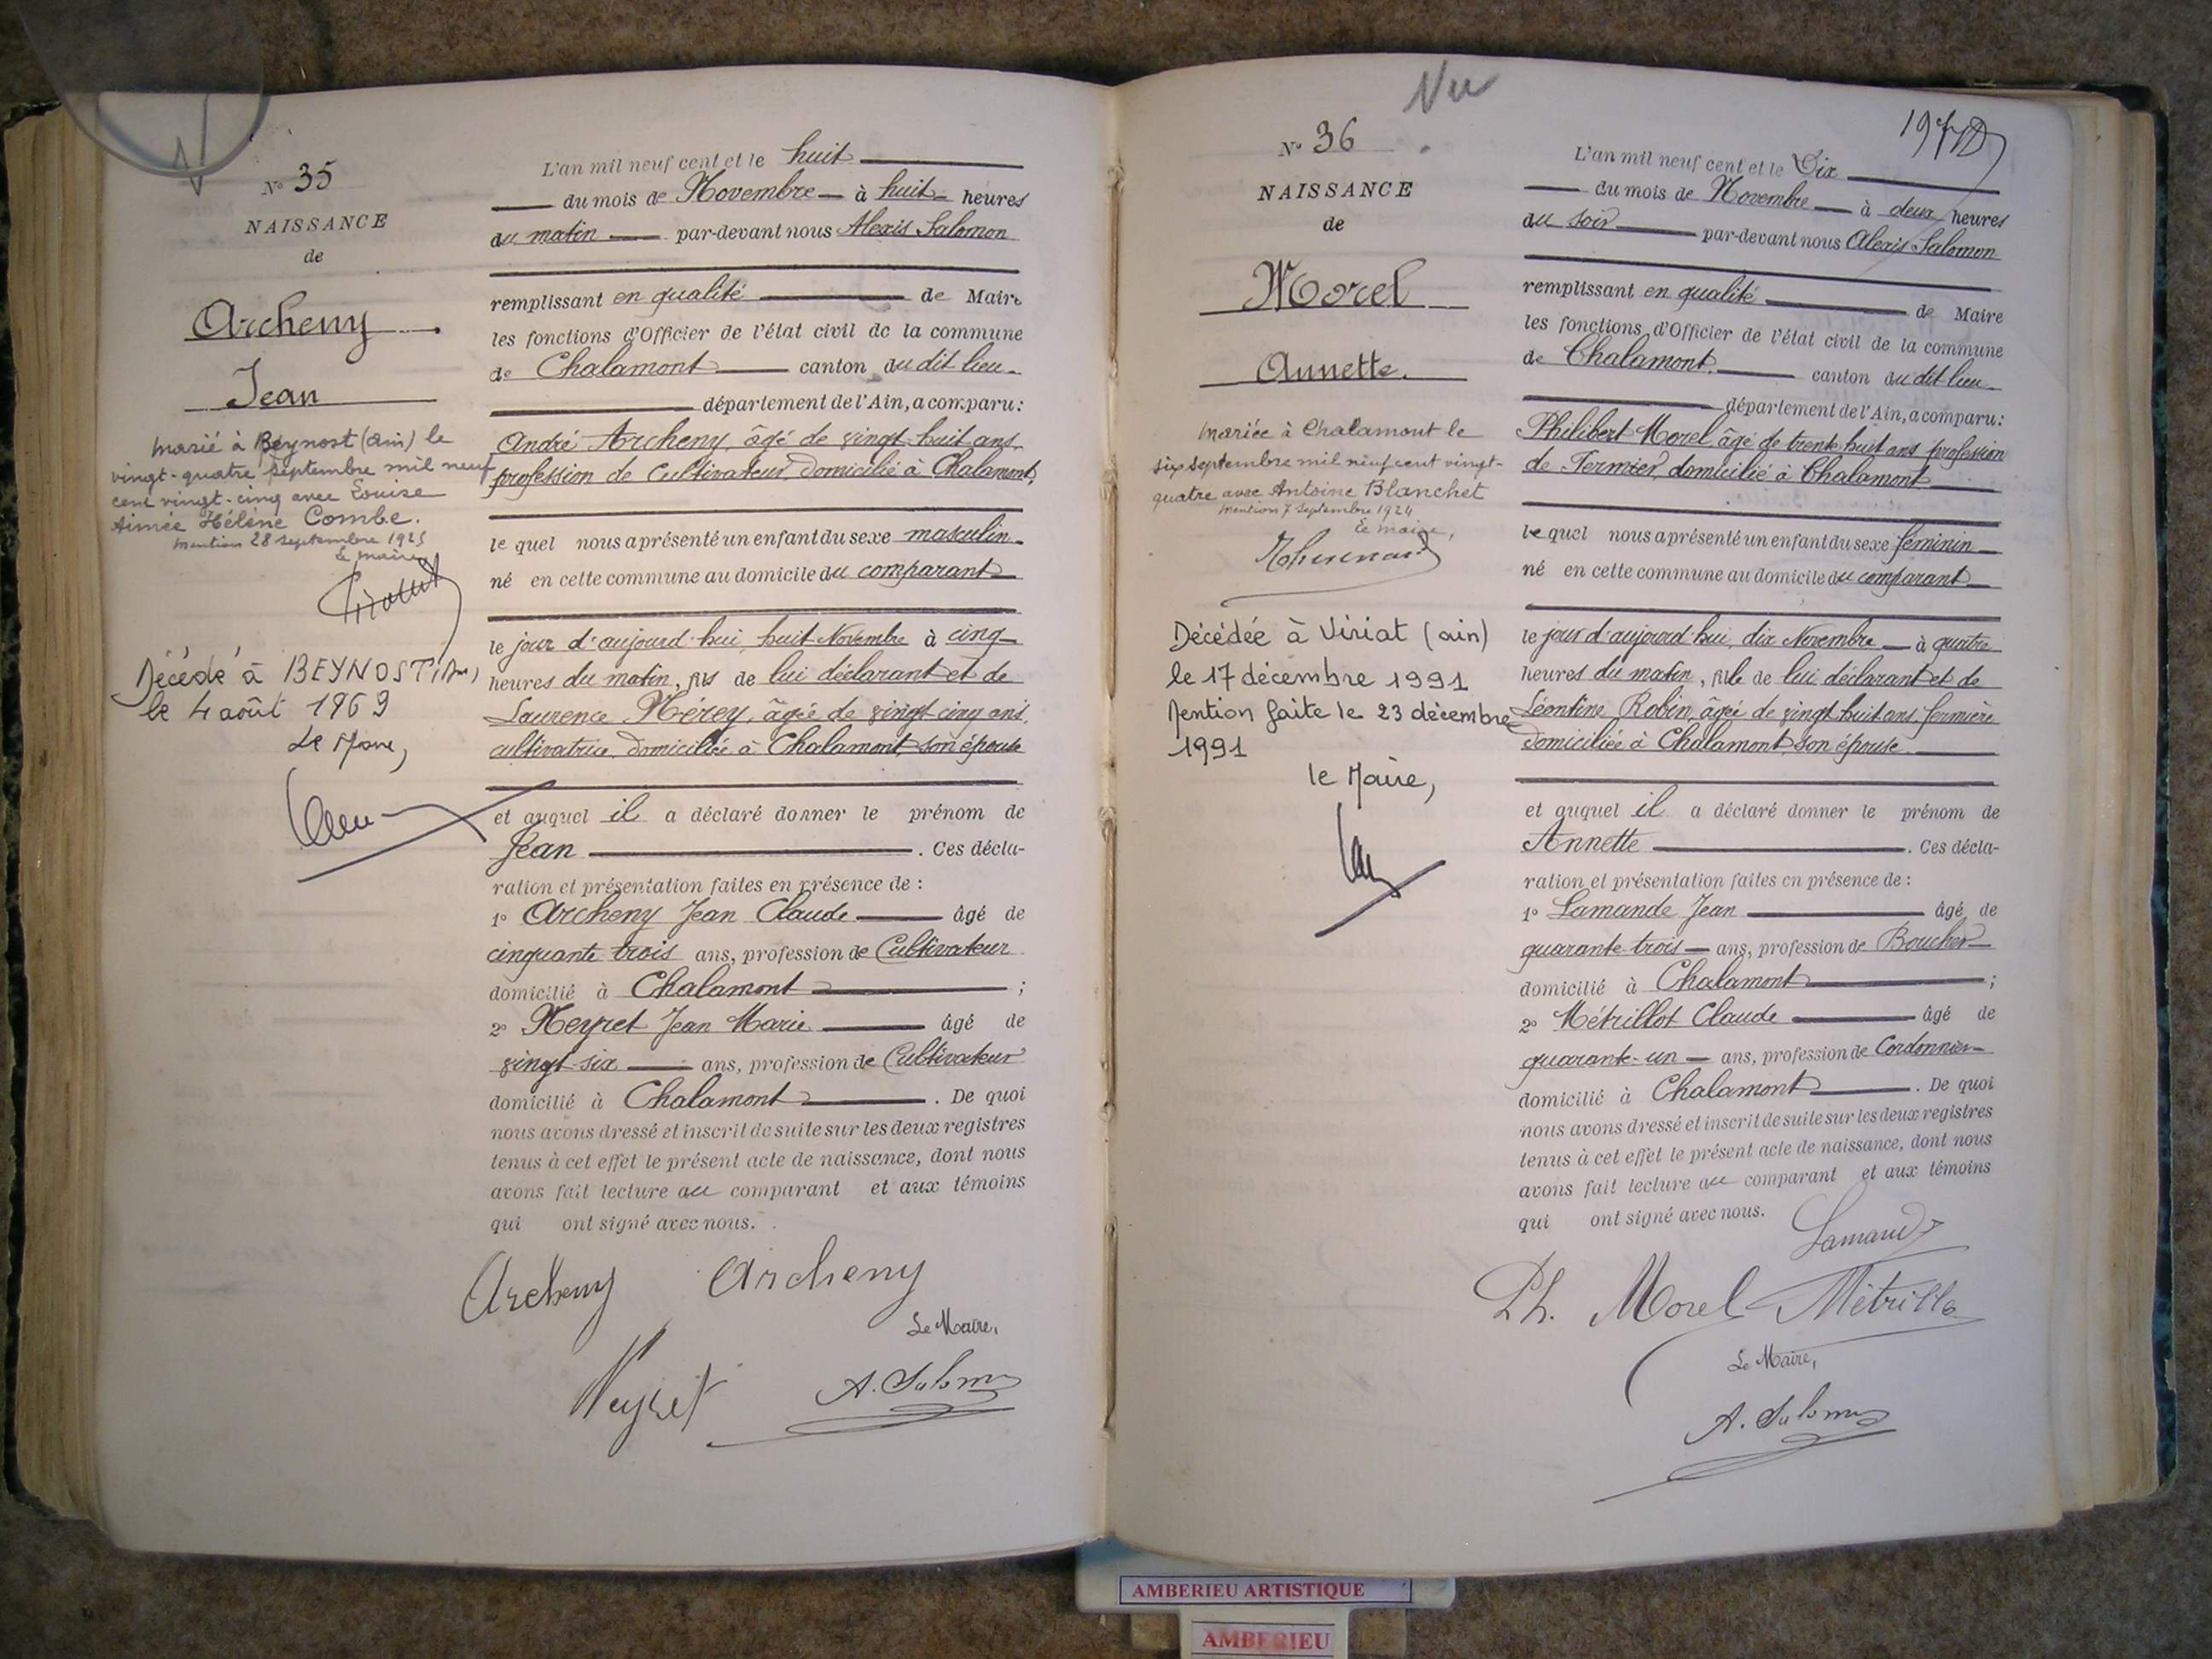 N° 35
NAISSANCE
de
Archeny
Jean
marié à Beynost (Ain) le
vingt-quatre septembre mil neuf
cent vingt-cinq avec Louise
Aimée Hélène Combe.
Mention 28 septembre 1925
Le maire
Décédé à BEYNOST (Ain)
le 4 août 1969
Le Maire,
L'an mil neuf cent et le huit
du mois de Novembre à huit heures
du matin par-devant nous Alexis Salomon
remplissant en qualité de Maire
les fonctions d'Officier de l'état civil de la commune
de Chalamont canton du dit lieu
département de l'Ain, a comparu:
André Archeny, âgé de vingt-huit ans,
profession de Cultivateur, domicilié à Chalamont,
le quel nous a présenté un enfant du sexe masculin
né en cette commune au domicile du comparant
le jour d'aujourd'hui, huit Novembre à cinq
heures du matin, fils de lui déclarant et de
Laurence Nérey, âgée de vingt cinq ans,
cultivatrice, domiciliée à Chalamont, son épouse
et auquel il a déclaré donner le prénom de
Jean . Ces décla-
ration et présentation faites en présence de :
1° Archeny Jean Claude âgé de
cinquante trois ans, profession de Cultivateur
domicilié à Chalamont ;
2° Neyret Jean Marie âgé de
vingt-six ans, profession de Cultivateur
domicilié à Chalamont . De quoi
nous avons dressé et inscrit de suite sur les deux registres
tenus à cet effet le présent acte de naissance, dont nous
avons fait lecture au comparant et aux témoins
qui ont signé avec nous.
Archeny Archeny
Le Maire,
Neyret A. Salomon
Vu
N° 36
NAISSANCE
de
Morel
Annette.
Mariée à Chalamont le
six septembre mil neuf cent vingt-
quatre avec Antoine Blanchet
Mention 7 Septembre 1924
Le maire,
Décédée à Viriat (ain)
le 17 décembre 1991
Mention faite le 23 décembre
1991
le Maire,
L'an mil neuf cent et le Dix
du mois de Novembre à deux heures
du soir par-devant nous Alexis Salomon
remplissant en qualité de Maire
les fonctions d'Officier de l'état civil de la commune
de Chalamont. canton du dit lieu
département de l'Ain, a comparu:
Philibert Morel, âgé de trente-huit ans, profession
de Fermier, domicilié à Chalamont
le quel nous a présenté un enfant du sexe féminin
né en cette commune au domicile du comparant
le jour d'aujourd'hui, dix Novembre à quatre
heures du matin, fille de lui déclarant et de
Léontine Robin, âgée de vingt huit ans, fermière
domiciliée à Chalamont, son épouse
et auquel il a déclaré donner le prénom de
Annette . Ces décla-
ration et présentation faites en présence de :
1° Lamande Jean âgé de
quarante-trois ans, profession de Boucher
domicilié à Chalamont ;
2° Métrillot Claude âgé de
quarante-un ans, profession de Cordonnier
domicilié à Chalamont . De quoi
nous avons dressé et inscrit de suite sur les deux registres
tenus à cet effet le présent acte de naissance, dont nous
avons fait lecture au comparant et aux témoins
qui ont signé avec nous.
Lamande
Ph. Morel Métrillo
Le Maire,
A. Salomon
AMBERIEU ARTISTIQUE
AMBERIEU